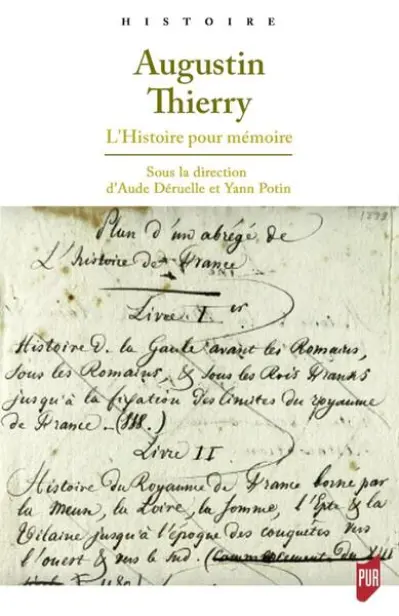 HISTOIRE
Augustin
Thierry
L'Histoire pour mémoire
Sous la direction
d'Aude Déruelle et Yann Potin
Plan d'un abrégé de
L'histoire de France
Livre I.er
Histoire de la Gaule avant les Romains,
sous les Romains, & sous les Rois Franks
jusqu'à la fixation des limites du royaume
de France
Livre II
Histoire du Royaume de France borné par
la Meuse, la Loire, la Somme, l'Epte & la
Vilaine jusqu'à l'époque des conquêtes vers
l'ouest & vers le Sud. (Commencement du XIII
PUR